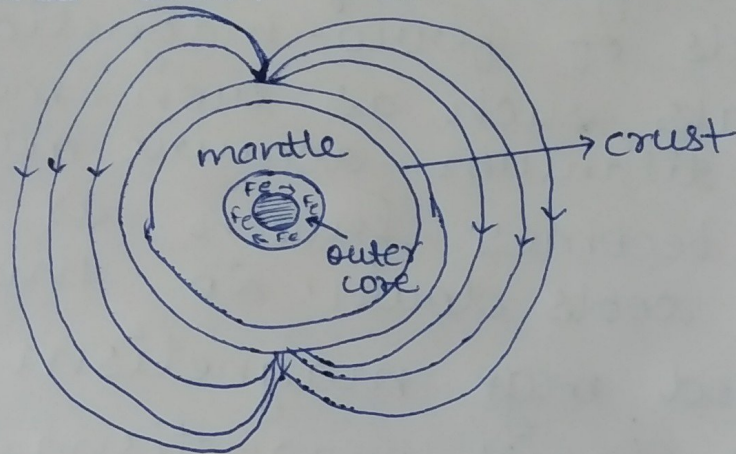 mantle
crust
Fe
Fe
Fe
Fe
outer
core